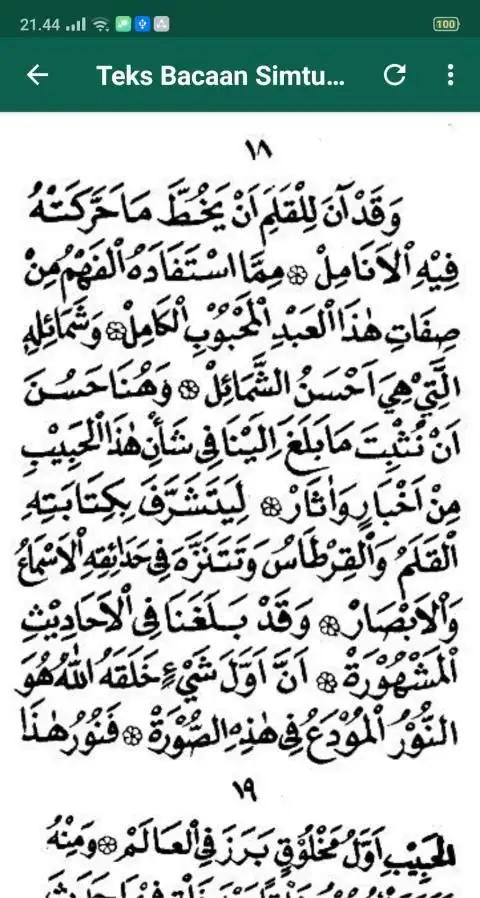 21.44
100
Teks Bacaan Simtu...
١٨
وَقَدْ آنَ لِلْقَلَمِ اَنْ يَخُطَّ مَا حَرَّكَتْهُ
فِيْهِ الْاَنَامِلْ ۞ مِمَّا اسْتَفَادَهُ الْفَهْمُ مِنْ
صِفَاتِ هٰذَا الْعَبْدِ الْمَحْبُوْبِ الْكَامِلْ ۞ وَشَمَائِلِهِ
الَّتِيْ هِيَ اَحْسَنُ الشَّمَائِلْ ۞ وَهُنَا حَسُنَ
اَنْ نُثْبِتَ مَا بَلَغَ اِلَيْنَا فِى شَأْنِ هٰذَا الْحَبِيْبِ
مِنْ اَخْبَارٍ وَاٰثَارْ ۞ لِيَتَشَرَّفَ بِكِتَابَتِهِ
الْقَلَمُ وَالْقِرْطَاسُ وَتَتَنَزَّهَ فِى حَدَائِقِهِ الْاَسْمَاعُ
وَالْاَبْصَارْ ۞ وَقَدْ بَلَغَنَا فِى الْاَحَادِيْثِ
الْمَشْهُوْرَةْ ۞ اَنَّ اَوَّلَ شَيْءٍ خَلَقَهُ اللهُ هُوَ
النُّوْرُ الْمُوْدَعُ فِى هٰذِهِ الصُّوْرَةْ ۞ فَنُوْرُ هٰذَا
١٩
الْحَبِيْبِ اَوَّلُ مَخْلُوْقٍ بَرَزَ فِى الْعَالَمْ ۞ وَمِنْهُ